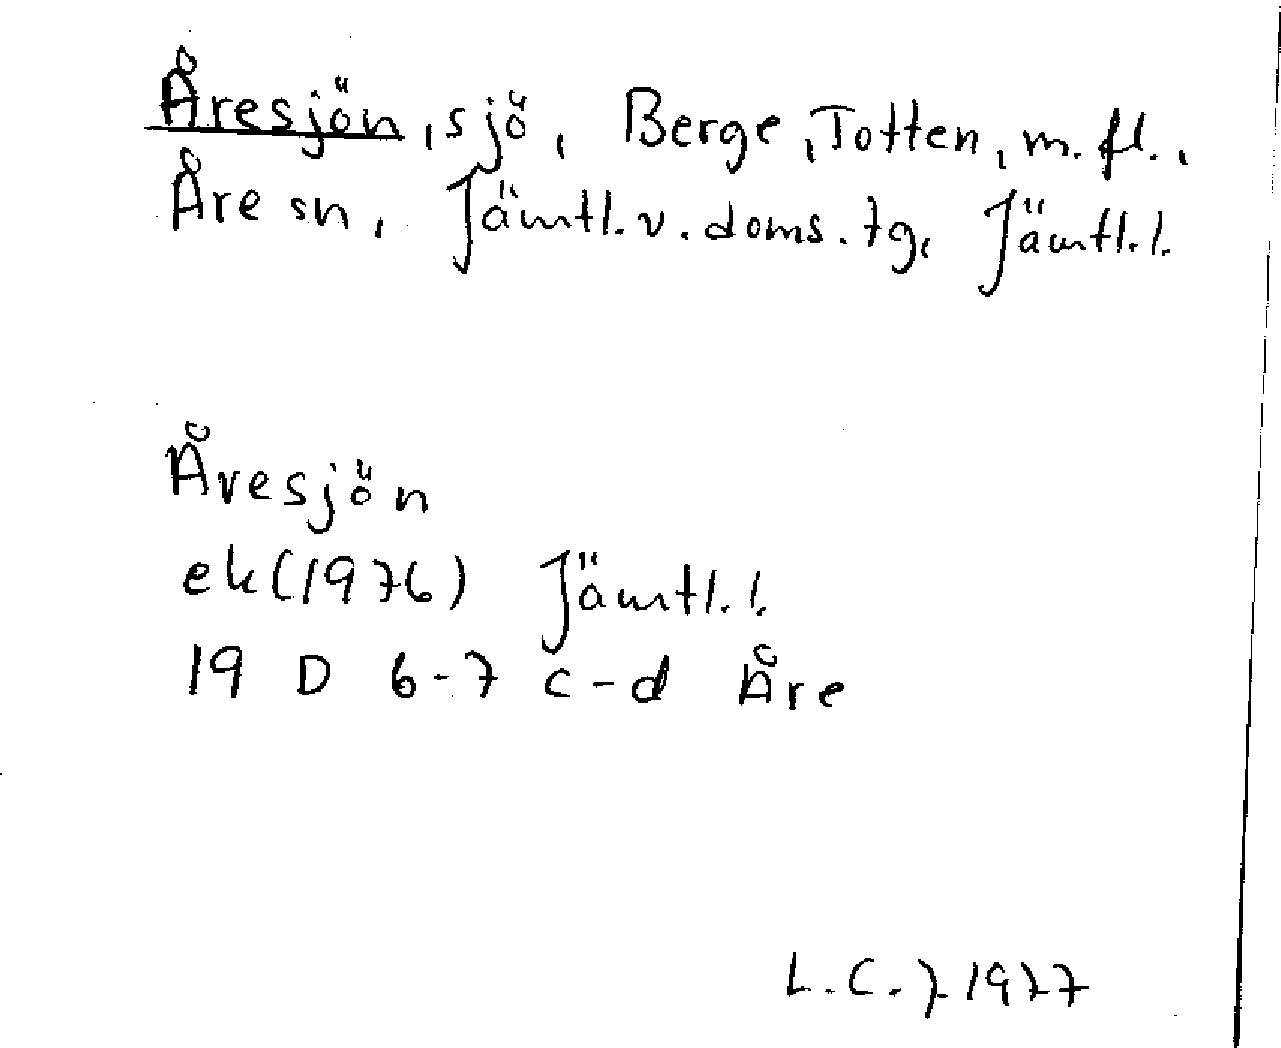 Åresjön, sjö, Berge, Totten, m. fl.,
Åre sn, Jämtl. v. doms. tg, Jämtl. l.
Åresjön
ek (1976) Jämtl. l.
19 D 6-7 c-d Åre
L. C. 1977